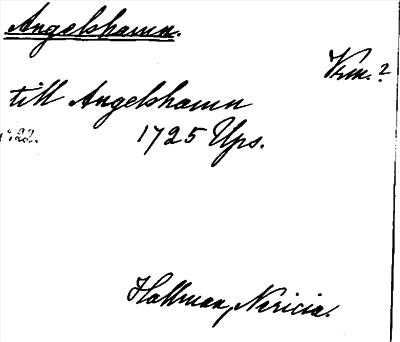 Angelshamn.
Vrm.?
till Angelshamn
1725 Ups.
Hallman, Nericia.